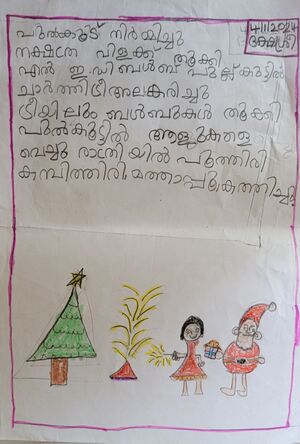 പുൽക്കൂട് നിർമ്മിച്ചു
നക്ഷത്ര വിളക്ക് തൂക്കി
എൻ ഇ.ഡി ബൾബ് പുൽക്കൂട്ടിൽ
ചാർത്തി ട്രീ അലങ്കരിച്ചു
ട്രീയിലും ബൾബുകൾ തൂക്കി
പുൽകൂട്ടിൽ ആളുകളെ
വെച്ചു രാത്രിയിൽ പൂത്തിരി
കമ്പിത്തിരി, മത്താപ്പു കത്തിച്ചു